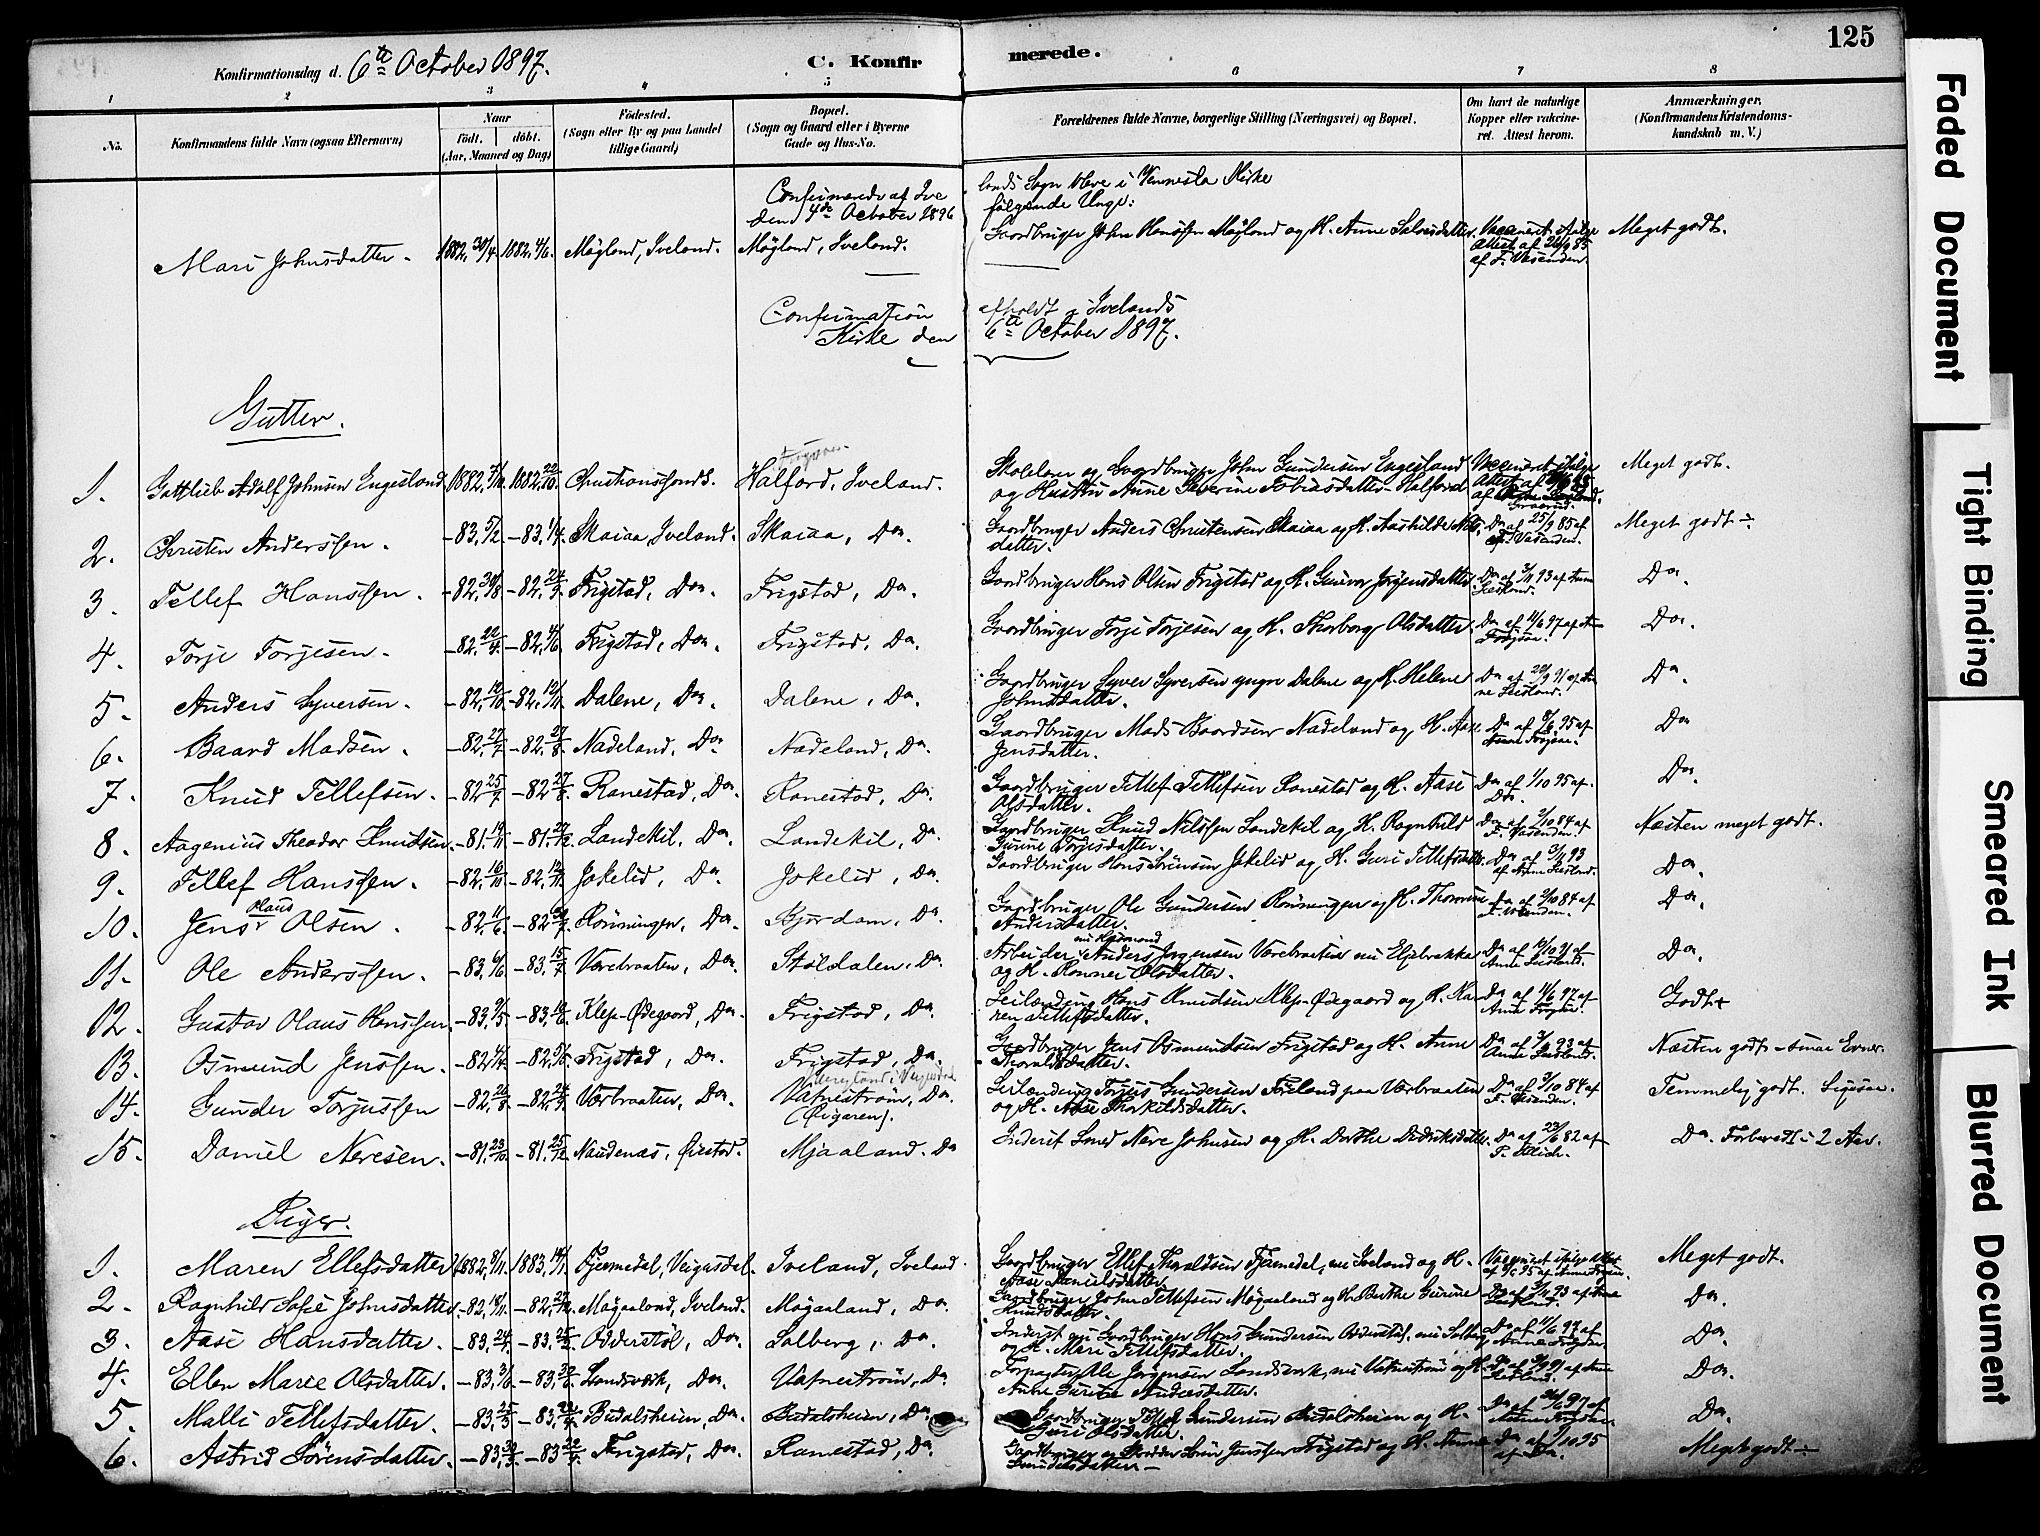 125
Konfirmationsdag d. 6te October 1897.
C. Konfirmerede.
1 2 3 4 5 6 7 8
No.
Konfirmandens fulde Navn (ogsaa Efternavn)
Naar
födt. döbt.
(Aar, Maaned og Dag)
Födested.
(Sogn eller By og paa Landet
tillige Gaard)
Bopæl.
(Sogn og Gaard eller i Byerne
Gade og Hus-No.
Forældrenes fulde Navne, borgerlige Stilling (Næringsvei) og Bopæl.
Om havt de naturlige
Kopper eller vakcine-
ret. Attest herom.
Anmærkninger.
(Konfirmandens Kristendoms-
kundskab m. V.)
Confirmerede af Ive lands Sogn bleve i Vennesla Kirke
den 4de October 1896 følgende Unge:
Mari Johnsdatter. 1882 30/4. 1882 4/6. Møgland, Iveland. Møgland, Iveland. Gaardbruger John Hansen Møgland og H. Anne Salvesdatter. Vaccineret ifølge Meget godt.
Attest af 26/9 85
af F. Vasenden.
Confirmation afholdt i Ivelands
Kirke den 6te October 1897.
Gutter.
1. Gottlieb Adolf Johnsen Engesland 1882 1882 22/10 Christianssands. Halford, Iveland. Skolelærer og Gaardbruger John Gundersen Engesland Vaccineret ifølge Meget godt.
og Hustru Anne Severine Tobiasdatter Halford Attest af
2. Christen Anderssen. -83 5/2 -83 1/4 Skaiaa, Iveland. Skaiaa, Do. Gaardbruger Anders Christensen Skaiaa og H. Aashilde Nils- Do af 25/9 85 af Meget godt ÷
datter. F. Vasenden.
3. Tellef Hanssen. -82 30/8 -82 24/9 Frigstad, Do. Frigstad, Do. Gaardbruger Hans Olsen Frigstad og H. Gunvor Jørgensdatter Do af 3/11 93 af Anne Do.
4. Torje Torjesen. -82 22/4 -82 4/6 Frigstad, Do. Frigstad, Do. Gaardbruger Torje Torjesen og H. Thorborg Olsdatter. Do af 11/6 97 af An- Do.
5. Anders Syversen. -82 12/10 -82 12/11 Dalene, Do. Dalene, Do. Gaardbruger Syver Syversen yngre Dalene og H. Helene Do
Johnsdatter.
6. Baard Madsen. -82 27/7 -82 27/8 Nadeland, Do. Nadeland, Do. Gaardbruger Mads Baardsen Nadeland og H. Aase Do af 8/6 95 af Do
Jensdatter.
7. Knud Tellefsen. -82 25/7 -82 27/8 Ranestad, Do. Ranestad, Do. Gaardbruger Tellef Tellefsen Ranestad og H. Aase Do af 1/10 95 af Do.
Olsdatter. Do.
8. Aagenius Theodor Knudsen. -81 19/11 -81 27/12 Landekil, Do. Landekil, Do. Gaardbruger Knud Nilssen Landekil og H. Ragnhild Do af 2/10 84 af Næsten meget godt.
Gurine Torjesdatter. F. Vasenden.
9. Tellef Hanssen. -82 16/10 -82 12/11 Jokelid, Do. Jokelid, Do. Gaardbruger Hans Sørensen Jokelid og H. Guri Tellefsdatter. Do af 3/11 93 Do.
10. Jens Olaus Olsen. -82 11/6 -82 30/7 Rønningen, Do. Do. Gaardbruger Ole Gundersen Rønningen og H. Thomine Do af 2/10 84 af Do.
Andersdatter. F. Vasenden.
11. Ole Anderssen. -83 6/6 -83 15/7 Værbraaten, Do. Støldalen, Do. Arbeider Anders Jørgensen Værbraaten nu Eljebrække Do.
og H. Ronnei Olsdatter.
12. Gustav Olaus Hanssen -83 9/5 -83 10/6 Klep-Ødegaard, Do. Frigstad, Do. Leilænding Hans Knudsen Klep-Ødegaard og H. Ka- Do af 11/6 97 af Godt +
ren Tellefsdatter.
13. Osmund Jenssen. -82 -82 Frigstad, Do. Frigstad, Do. Gaardbruger Jens Osmundsen Frigstad og H. Anne Do af 3/11 93 af Næsten godt - smaa Evner.
Thoraldsdatter.
14. Gunder Torjussen -82 26/8 -82 24/9 Værbraaten, Do. Vatnestrøm, Do. Leilænding Torjus Gundersen Frøland paa Værbraaten Do af 2/10 84 af Temmelig godt. Ligesaa.
og H. Aase Thorkildsdatter. F. Vasenden.
15. Daniel Neresen. -81 23/10 -81 25/12 Naudenæs, Øiestad. Mjaaland. Do Inderst Smed Nere Johnsen og H. Dorthe Didriksdatter. Do af 23/6 82 af Do. Forberedt i 2 Aar.
Piger.
1. Maren Ellefsdatter 1882 8/11 1883 14/1 Fjermedal, Veigusdal. Iveland, Iveland. Gaardbruger Ellef Thoraldsen Fjermedal, nu Iveland og H. Vaccineret ifølge Attest Meget godt.
Aase Danielsdatter.
2. Ragnhild Sofie Johnsdatter. -82 18/11 -82 27/12 Møgaaland, Iveland. Møgaaland, Do. Gaardbruger John Tellefsen Møgaaland og H. Birthe Gurine Do af 3/11 93 af Anne Do.
Knudsdatter.
3. Aase Hansdatter. -83 24/1 -83 25/3 Odderstøl, Do. Solberg, Do. Inderst nu Gaardbruger Hans Gundersen Odderstøl, nu Solberg Do af 11/6 97 af Do.
og H. Mari Tellefsdatter.
4. Ellen Marie Olsdatter. -83 3/6 -83 Landsverk, Do. Vatnestrøm, Do Forpagter Ole Jørgensen Landsverk, nu Vatnestrøm og H. Do.
Anne Gurine Andersdatter.
5. Malli Tellefsdatter. -83 25/3 -83 Birdalsheien, Do. Birdalsheien, Do. Gaardbruger Tellef Gundersen Birdalsheien og H. Do.
Guri Olsdatter.
6. Astrid Sørensdatter. -83 -83 Frigstad, Do. Ranestad, Do. Gaardbruger og Skrædder Søren Jenssen Frigstad og H. Anne Do af 1/10 95 Meget godt ÷
Gundersdatter. af Do.
Faded Document
Tight Binding
Smeared Ink
Blurred Document